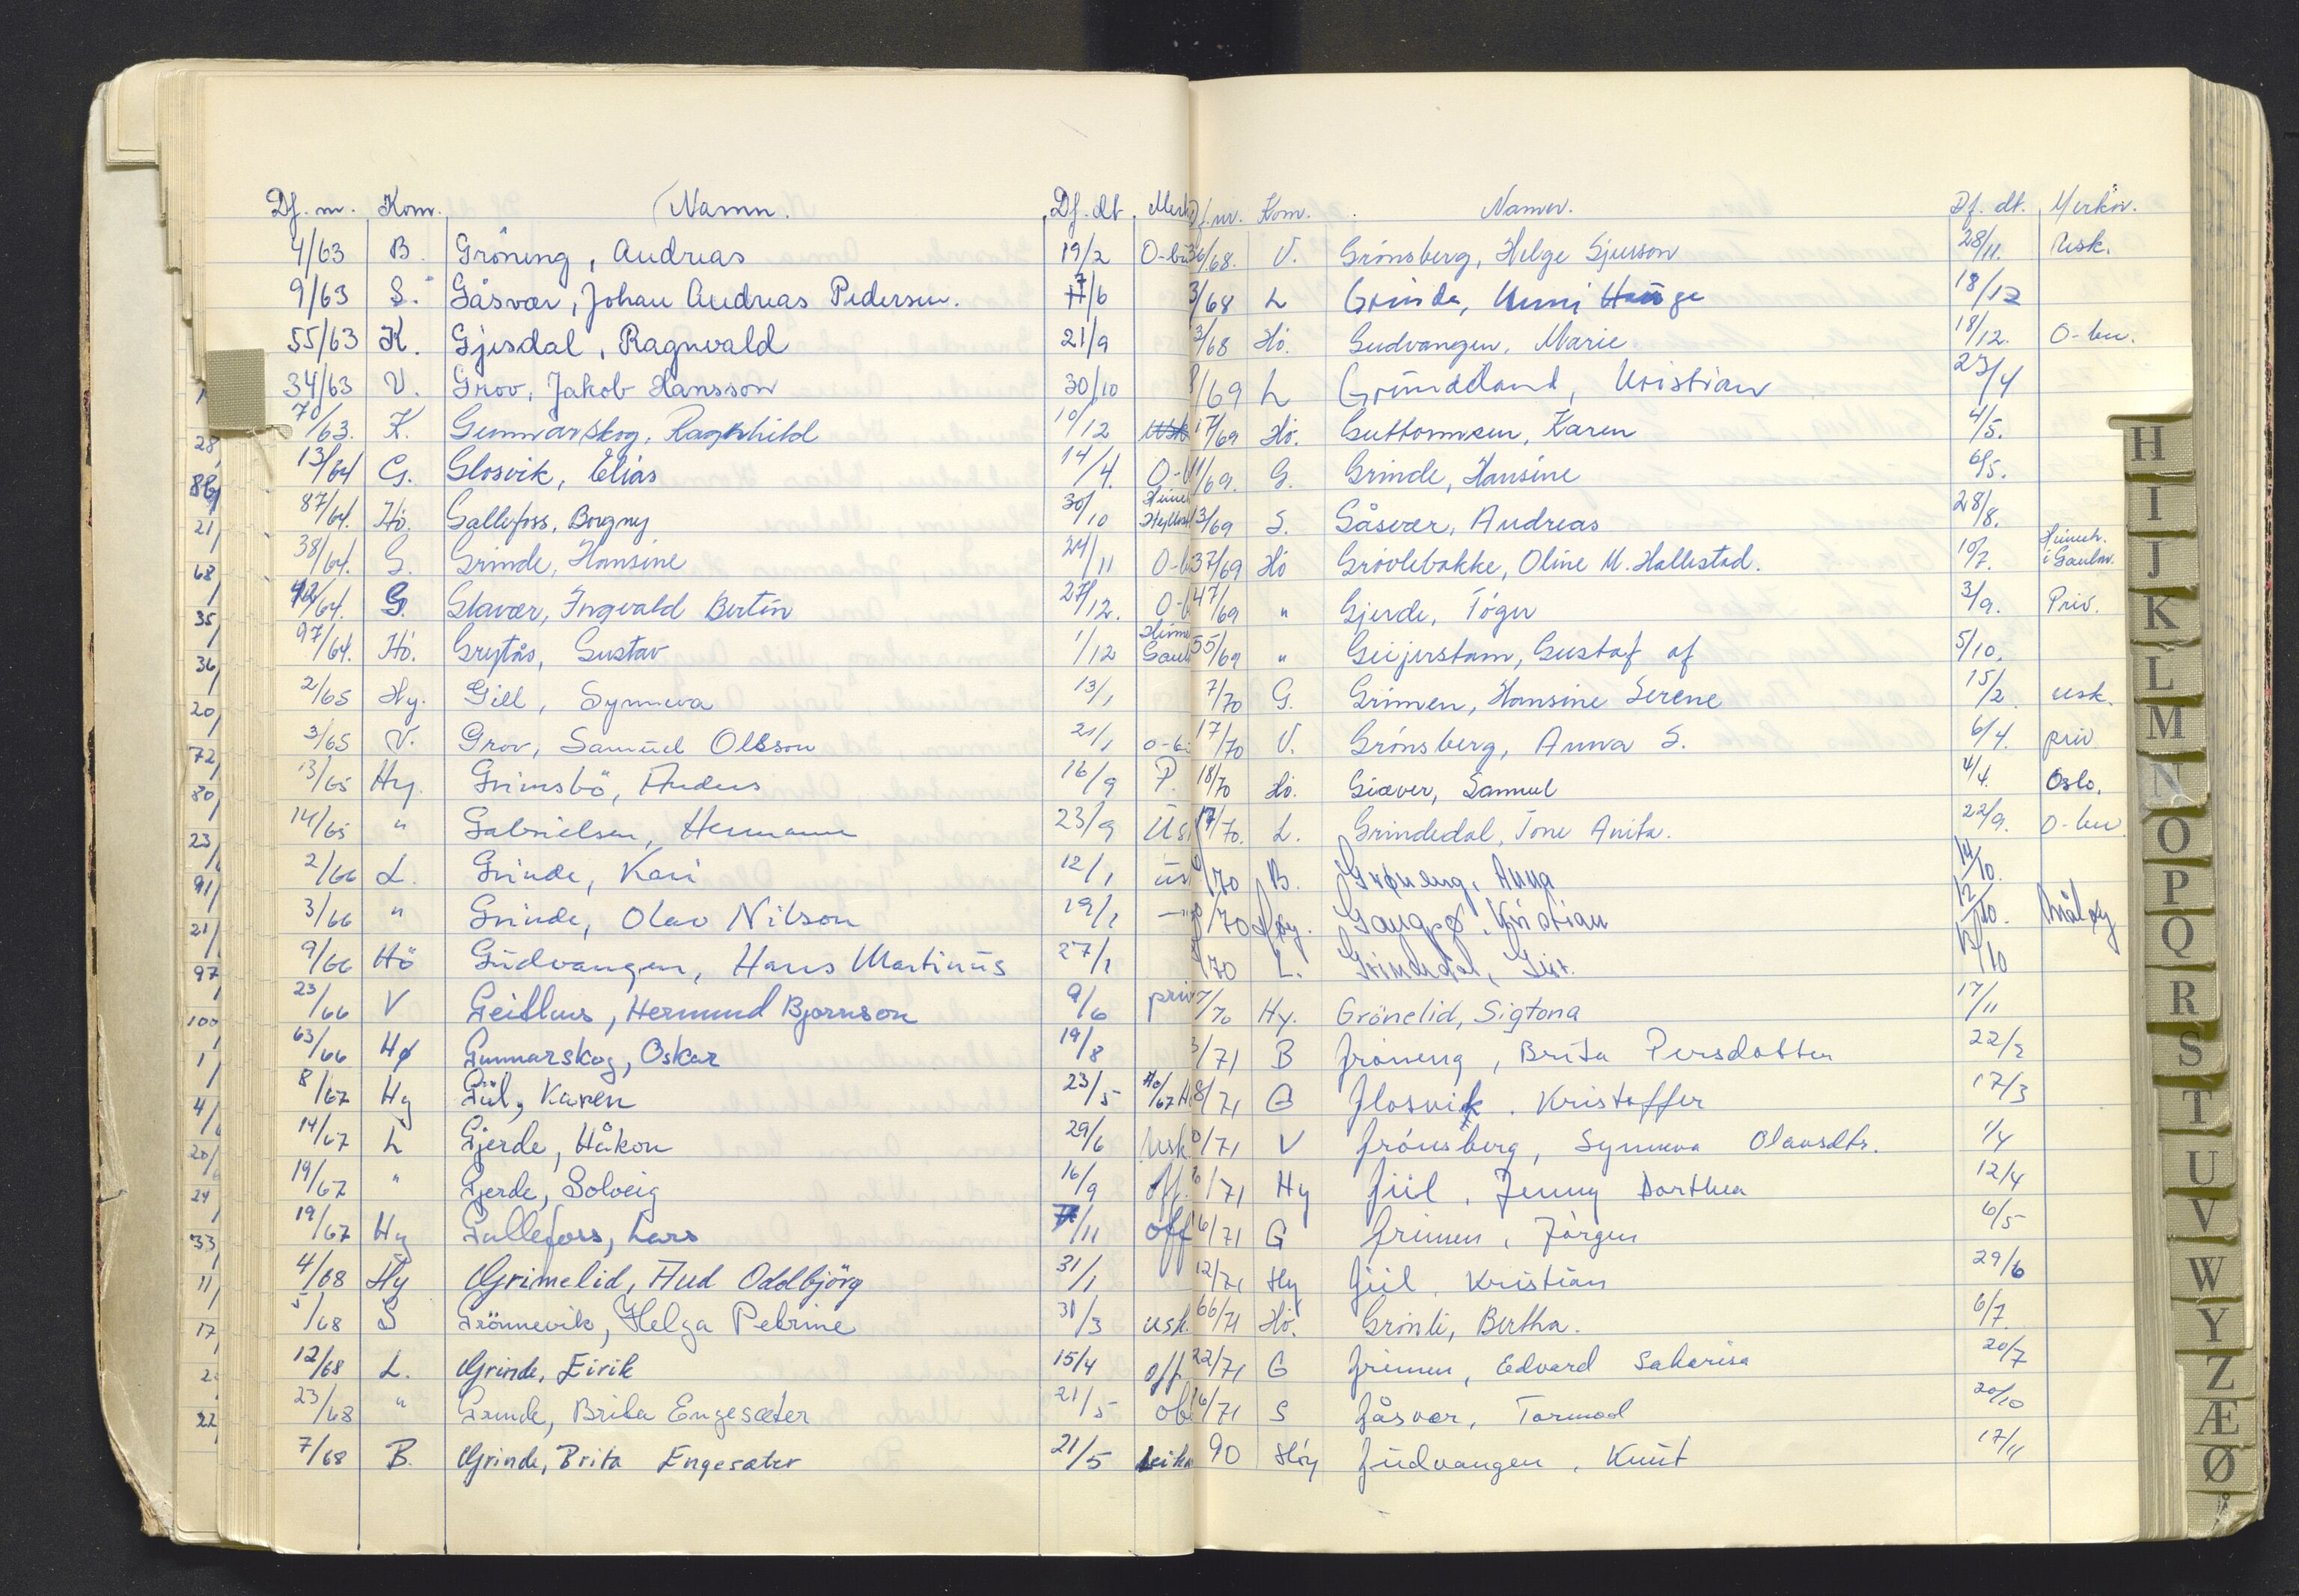 Df. nr. Kom. Namn. Df. dt Merk
4/63 B. Gröneng, Andreas 19/2 O-bu
9/63 S. Gåsvær, Johan Andreas Pedersen. 7/6
55/63 K. Gjesdal, Ragnvald 21/9
34/63 V. Grov, Jakob Hansson 30/10
70/63. K. Gunnarskog, Ragnhild 10/12 usk
13/64 G. Glosvik, Elias 14/4. O-b
87/64. Hö. Gallefoss, Borgny 30/10 Heime Hyllest
38/64. G. Grinde, Hansine 24/11 O-b
42/64. G. Glavær, Ingvald Bertin 27/12. O-b
97/64. Hö. Grytås, Gustav 1/12 Heime Gaul
2/65 Hy. Giil, Synneva 13/1
3/65 V. Grov, Samuel Olsson 21/1 o-b
13/65 Hy. Grimsbö, Anders 16/9 P.
14/65 " Gabrielsen, Hermann 23/9 Us
2/66 L. Grinde, Kari 12/1 us
3/66 " Grinde, Olav Nilson 19/1 —"
9/66 Hö Gudvangen, Hans Martinus 27/1
23/66 V Geithus, Hermund Bjørnson 9/6 priv
63/66 Hø Gunnarskog, Oskar 19/8
8/67 Hy Giil, Karen 23/5
14/67 L Gjerde, Håkon 29/6 Usk.
19/67 " Gjerde, Solveig 16/9 off.
19/67 Hy Gallefoss, Lars /11 off
4/68 Hy Grimelid, Aud Oddbjörg 31/1
5/68 S Grönnevik, Helga Petrine 31/3 usk.
12/68 L. Grinde, Eirik 15/4 off
23/68 " Grinde, Brita Engesæter 21/5 ob
7/68 B. Grinde, Brita Engesæter 21/5 Leika
Df. nr. Kom. Namn. Df. dt. Merkn.
36/68. V. Grönsberg, Helge Sjurson 28/11. Usk.
3/68 L Grinde, Unni Hauge 18/12
3/68 Hö. Gudvangen, Marie 18/12. O-bu.
/69 L Kristian 23/4
17/69 Hö. Guttormsen, Karen 4/5.
/69. G. Grinde, Hansine 6/5.
3/69 S. Gåsvær, Andreas 28/8.
37/69 Hö Grövlebakke, Oline M. Hallestad. 10/7. Heimeh. i Gaular.
47/69 " Gjerde, Töger 3/9. Priv.
55/69 " Geijerstam, Gustaf af 5/10.
7/70 G. Grimen, Hansine Serene 15/2 usk.
17/70 V. Grönsberg, Anna S. 6/4. priv
18/70 Hö. Giæver, Samuel 4/4. Oslo.
17/70. L. Grindedal, Tone Anita. 22/9. O-bu.
/70 B. Grøneng, Anna 14/10.
/70 Høy. Gangsø, Kristian 12/10. Måløy
/70 L. Grindedal, Geir. 13/10
7/70 Hy. Grönelid, Sigtona 17/11
3/71 B Gröneng, Brita Persdotter 22/2
8/71 G Glosvik. Kristoffer 17/3
/71 V Grönsberg, Synneva Olavsdtr. 1/4
6/71 Hy Giil, Jenny Dorthea 12/4
16/71 G Grimen, Jörgen 6/5
12/71 Hy Giil, Kristian 29/6
66/71 Hö. Grönli, Bertha. 6/7.
22/71 G Grimen, Edvard Sakarisa 20/7
6/71 S Gåsvær, Tormod 20/10
90 Höy Gudvangen, Knut 17/11
28
86
21
68
35
36
20
72
80
23
91
21
97
100
1
4
20
24
33
11
17
2
22
H
I
J
K
L
M
N
O
P
Q
R
S
T
U
V
W
Y
Z
Æ
Ø
Å